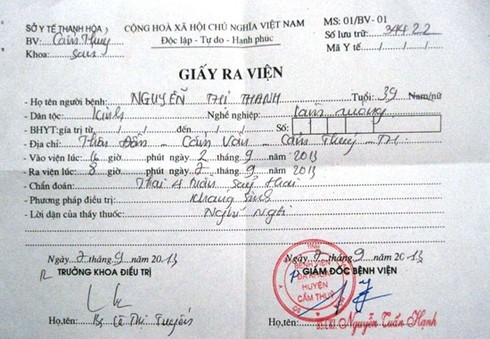 SỞ Y TẾ THANH HÓA CỘNG HOÀ XÃ HỘI CHỦ NGHĨA VIỆT NAM MS: 01/BV- 01
BV: Cẩm Thuỷ Độc lập - Tự do - Hạnh phúc Số lưu trữ: 34422
Khoa: Sản Mã Y tế / /
GIẤY RA VIỆN
- Họ tên người bệnh: NGUYỄN THỊ THANH Tuổi: 39 Nam/nữ
- Dân tộc: Kinh Nghề nghiệp: Làm ruộng
- BHYT: gía trị từ / / đến / / Số:
- Địa chỉ: Thôn Đồn - Cẩm Vân - Cẩm Thuỷ - TH
- Vào viện lúc giờ phút ngày 2 tháng 9 năm 2013
- Ra viện lúc: 8 giờ phút ngày 7 tháng 9 năm 2013
- Chẩn đoán: Thai 4 tuần sảy thai
- Phương pháp điều trị: Kháng sinh
- Lời dặn của thầy thuốc: Nghỉ ngơi
Ngày 7 tháng 9 năm 2013 Ngày 7 tháng 9 năm 2013
TRƯỞNG KHOA ĐIỀU TRỊ GIÁM ĐỐC BỆNH VIỆN
BỆNH VIỆN
ĐA KHOA
HUYỆN
CẨM THUỶ
Họ, tên: Bs Lê Thị Tuyến Họ, tên: Nguyễn Tuấn Hạnh